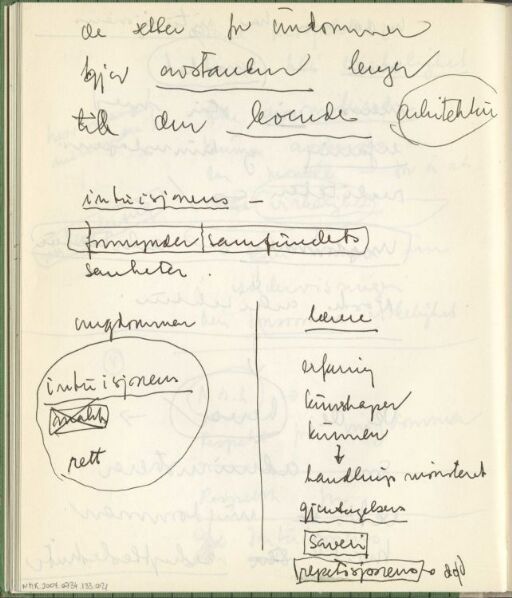 de eller for ungdommer
gjør avstanden lenger
till den levende arkitektur
intuisjonens –
formynder|samfundets
sanheter.
ungdommen
intuisjonens
rett
lærere
erfaring
kunskaper
kunnen
↓
handlings mönsteret
gjentagelsens
repetisjonens → död
NMK.2005.0734.133.021